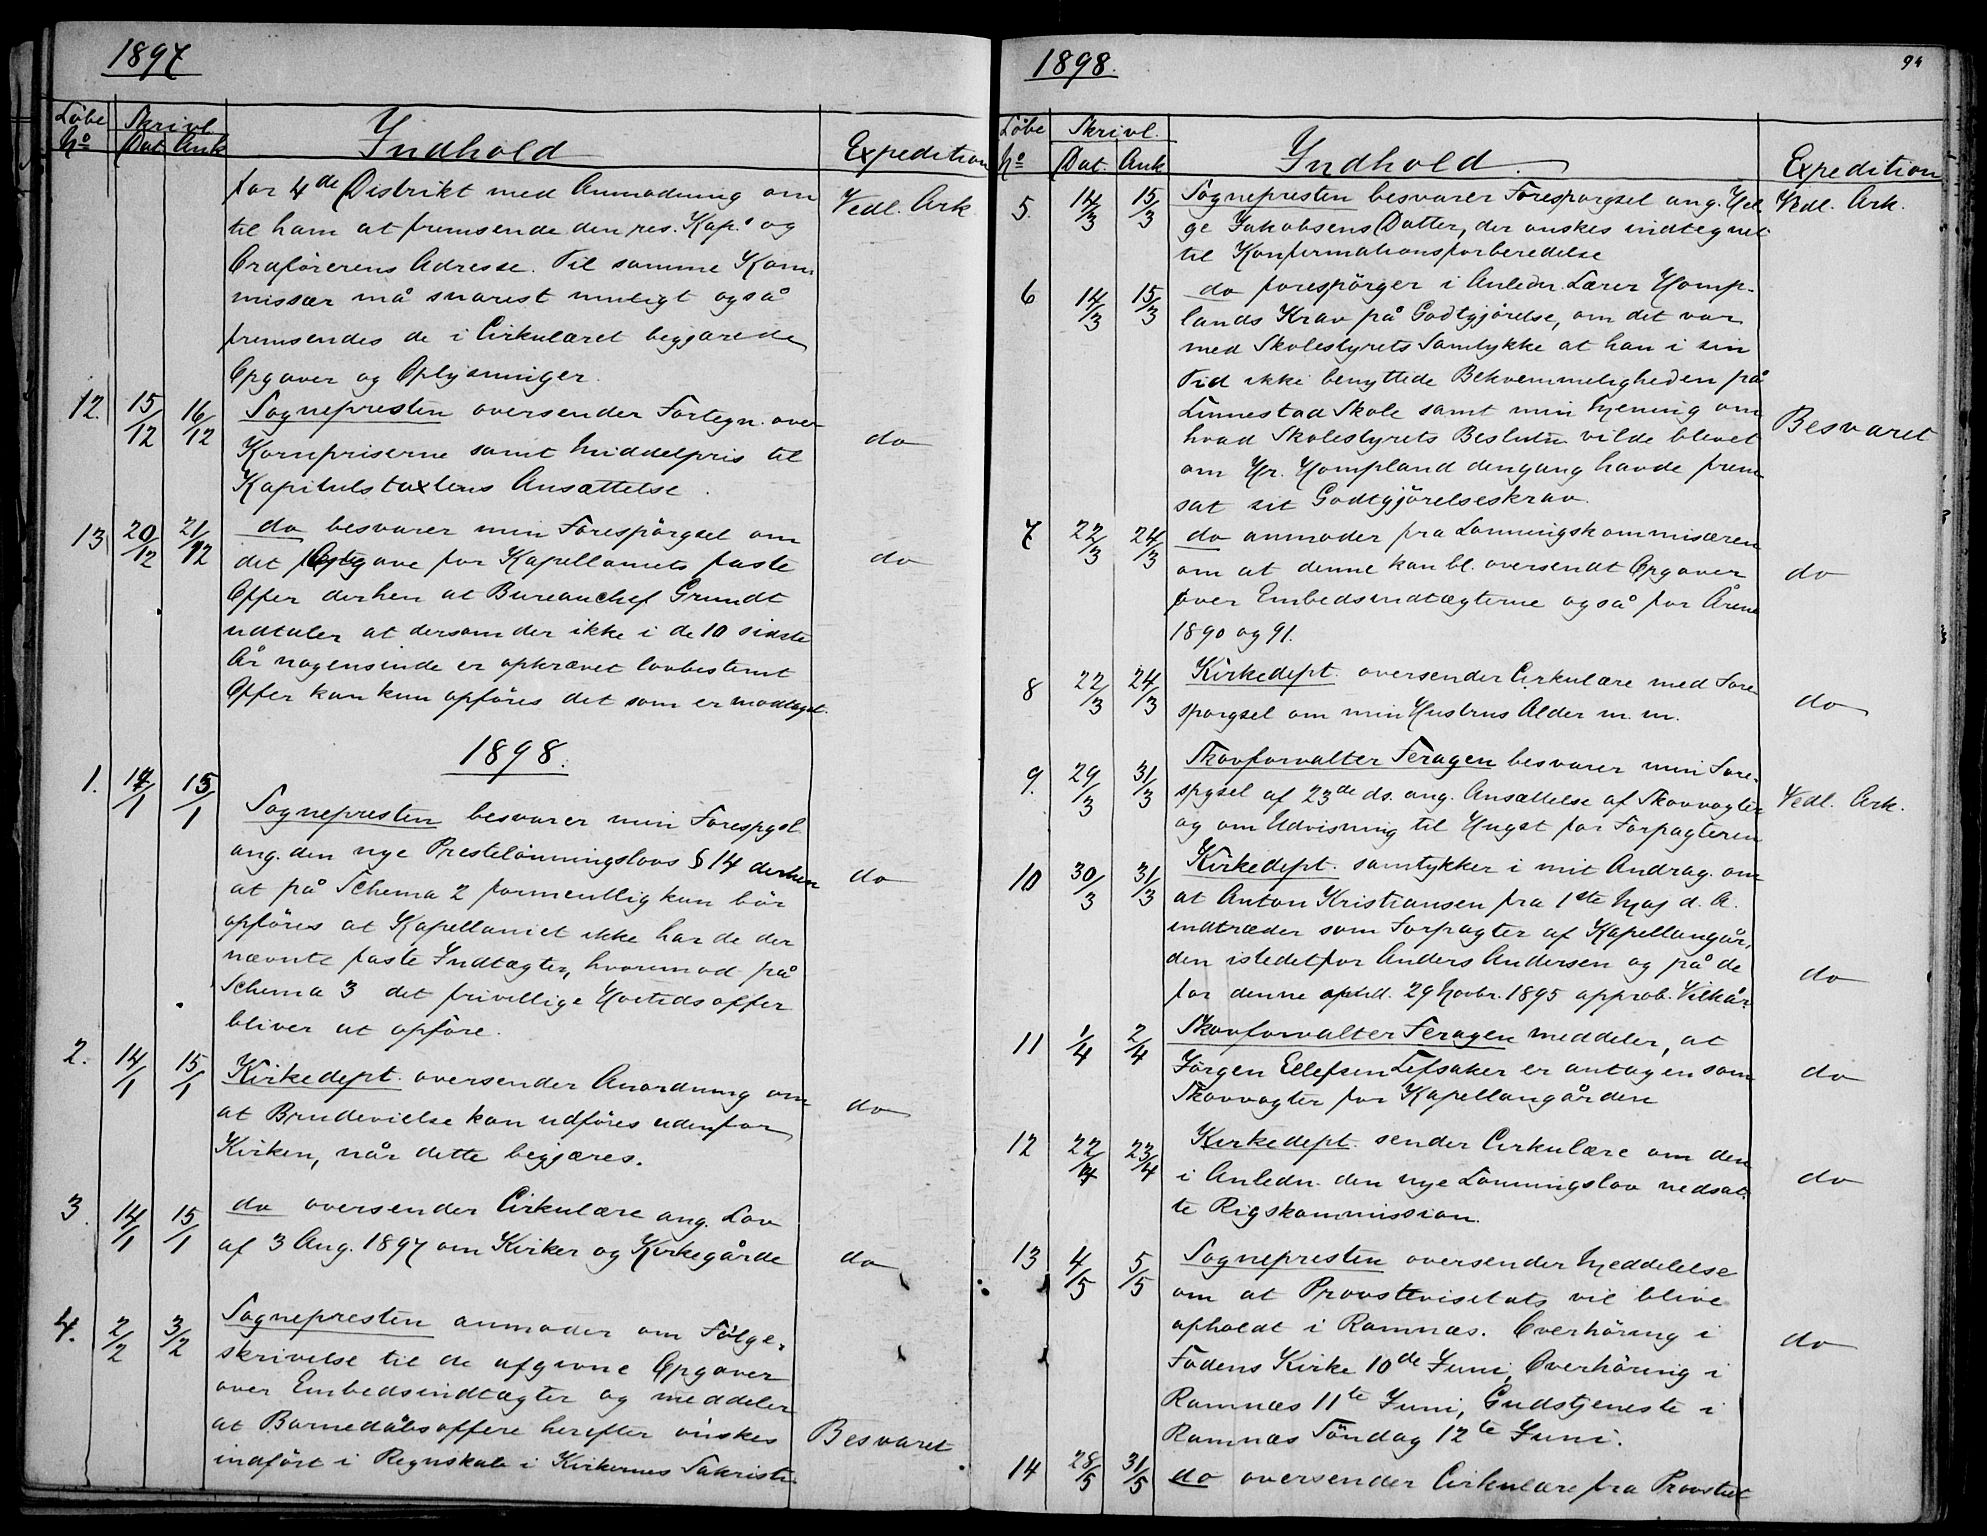 1897
Löbe No | Skrivl. Dat. Ank | Indhold | Expedition
for 4de Distrikt med Anmodning om | Vedl. Ark
til ham at fremsende den res. Kap.s og
Ordförerens Adresse. Til samme Kom-
missær må snarest muligt også
fremsendes de i Cirkulæret begjærede
Opgaver og Oplysninger.
12 | 15/12 | 16/12 | Sognepresten oversender Fortegn. over
Kornpriserne samt Middelpris til | do
Kapitulstaxtens Ansættelse.
13 | 20/12 | 21/12 | do besvarer min Forespörgsel om
det Opgave for Kapellaniets faste | do
Offer derhen at Bureauchef Grundt
udtaler at dersom der ikke i de 10 sidste
År nogensinde er opkrævet lovbestemt
Offer kan kun opföres det som er modtaget.
1898.
1. | 14/1 | 15/1 | Sognepresten besvarer min Forespgsl.
ang. den nye Prestelönningslovs § 14 derhen | do
at på Schema 2 formentlig kun bör
opföres at Kapellaniet ikke har de der
nævnte faste Indtægter, hvorimod på
Schema 3 det frivillige Höitidsoffer
bliver at opföre.
2. | 14/1 | 15/1 | Kirkedept. oversender Anordning om
at Brudevielse kan udföres udenfor | do
Kirken, når dette begjæres.
3. | 14/1 | 15/1 | do oversender Cirkulære ang. Lov
af 3 Aug. 1897 om Kirker og Kirkegårde | do
4. | 2/2 | 3/2 | Sognepresten anmoder om Fölge-
skrivelse til de afgivne Opgaver
over Embedsindtægter og meddeler
at Barnedåbsoffere herefter önskes | Besvaret
indfört i Regnskab i Kirkernes Sakristi
1898. | 94
Löbe No | Skrivl. Dat. Ank | Indhold. | Expedition
5. | 14/3 | 15/3 | Sognepresten besvarer Forespörgsel ang. Hel- | Vedl. Ark.
ge Jakobsens Datter, der önskes indtegnet
til Konfirmationsforberedelse
6 | 14/3 | 15/3 | do forespörger i Anledn. Lærer Homp-
lands Krav på Godtgjörelse, om det var
med Skolestyrets Samtykke at han i sin
Tid ikke benyttede Bekvemmeligheden på
Linnestad Skole samt min Mening om
hvad Skolestyrets Beslutn. vilde blevet | Besvaret
om Hr. Hompland dengang havde frem-
sat sit Godtgjörelseskrav.
7 | 22/3 | 24/3 | do anmoder fra Lönningskommisæren
om at denne kan bl. oversendt Opgaver | do
over Embedsindtægterne også for Årene
1890 og 91.
8 | 22/3 | 24/3 | Kirkedept. oversender Cirkulære med Fore-
spörgsel om min Hustrus Alder m. m. | do
9. | 29/3 | 31/3 | Skovforvalter Feragen besvarer min Fore-
spgsel af 23de ds. ang. Ansættelse af Skovvogter | Vedl. Ark.
og om Udvisning til Hugst for Forpagteren
10 | 30/3 | 31/3 | Kirkedept. samtykker i mit Andrag. om
at Anton Kristiansen fra 1ste Maj d. A.
indtræder som Forpagter af Kapellangår-
den istedetfor Anders Andersen og på de | do
for denne 29 Novbr. 1895 approb. Vilkår.
11 | 1/4 | 2/4 | Skovforvalter Feragen meddeler, at
Jörgen Ellefsen Lefsaker er antagen som | do
Skovvogter for Kapellangården
12 | 22/4 | 23/4 | Kirkedept. sender Cirkulære om den
i Anledn. den nye Lönningslov nedsat- | do
te Rigskommission.
13 | 4/5 | 5/5 | Sognepresten oversender Meddelelse
om at Provstevisitats vil blive
apholdt i Ramnæs. Overhöring i | do
Fodens Kirke 10de Juni, Overhöring i
Ramnæs 11te Juni, Gudstjeneste i
Ramnæs Söndag 12te Juni.
14 | 28/5 | 31/5 | do oversender Cirkulære fra Provstiet